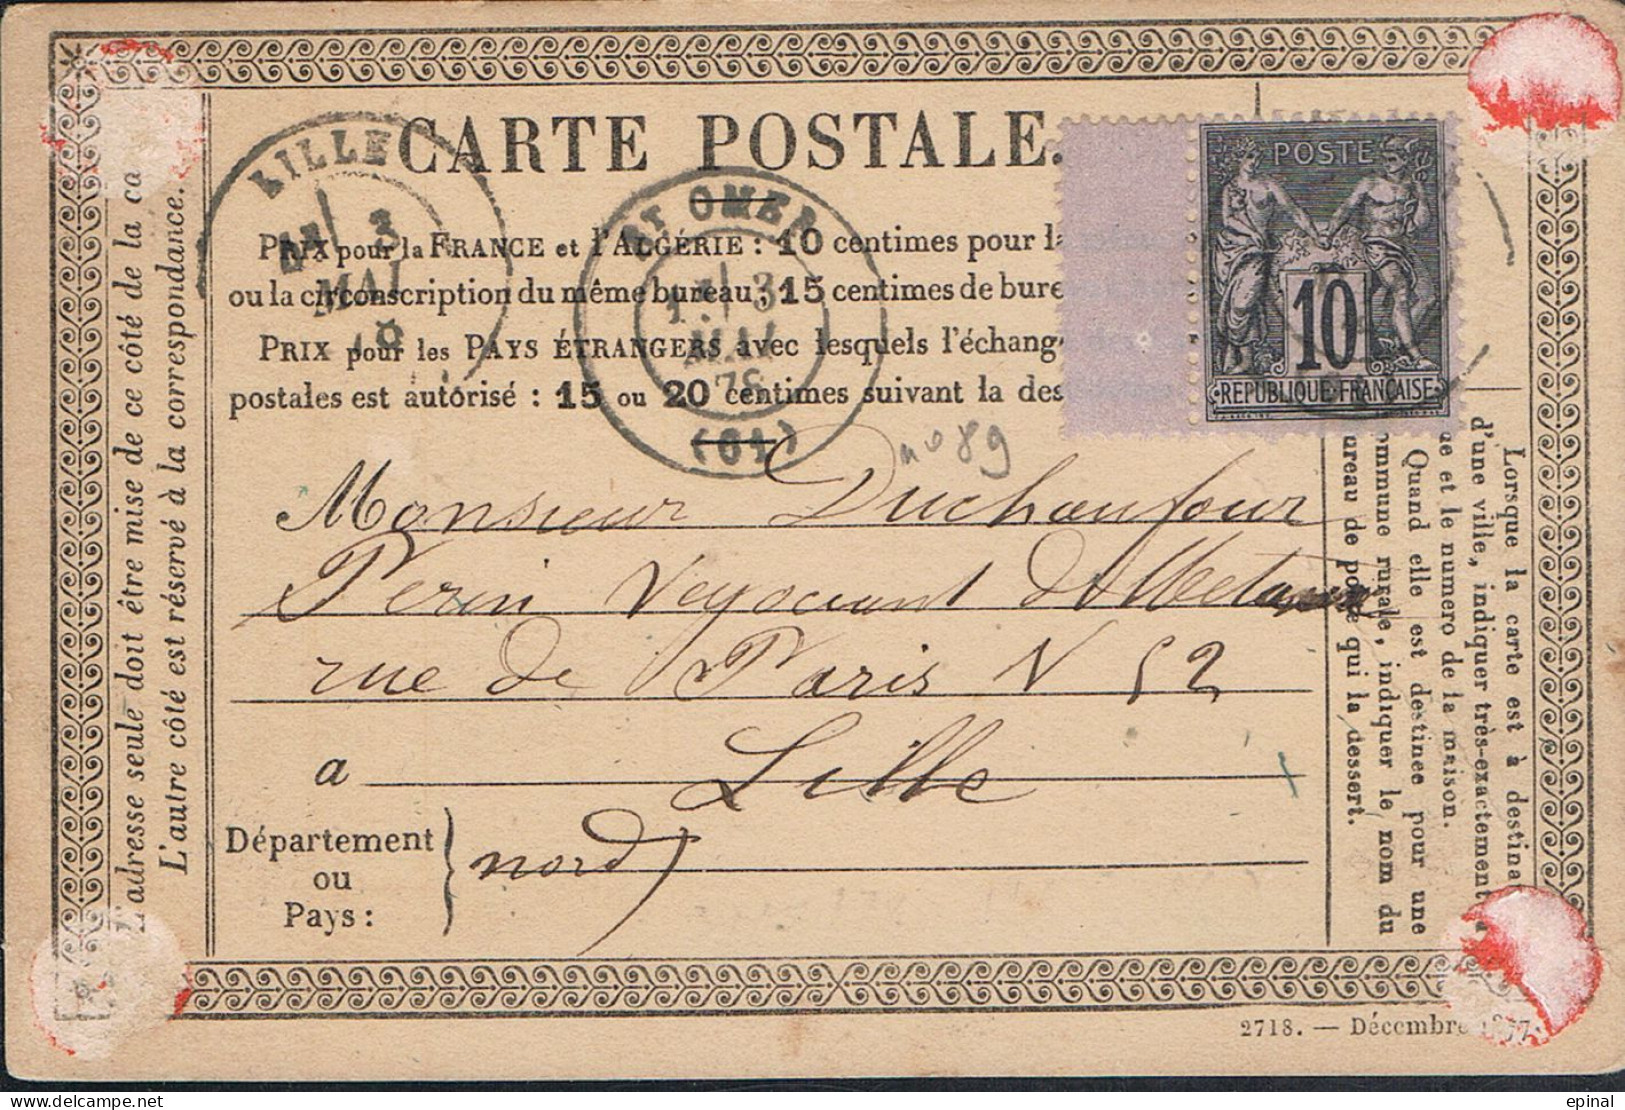 CARTE POSTALE.
POSTE
10
REPUBLIQUE FRANÇAISE
LILLE
3
MAI
ST OMER
3
MAI
78
(61)
PRIX pour la FRANCE et l'ALGÉRIE : 10 centimes pour la
ou la circonscription du même bureau; 15 centimes de bure
PRIX pour les PAYS ÉTRANGERS avec lesquels l'échang
postales est autorisé : 15 ou 20 centimes suivant la des
n° 89
Monsieur Duchaufour
Perin Negociant
rue de Paris N 52
a Lille
Département
ou
Pays :
nord
L'adresse seule doit être mise de ce côté de la ca
L'autre côté est réservé à la correspondance.
Lorsque la carte est à destina
d'une ville, indiquer très-exactement la
ue et le numero de la maison.
Quand elle est destinee pour une
ommune rurale, indiquer le nom du
ureau de poste qui la dessert.
2718. — Décembre 1877.
epinal